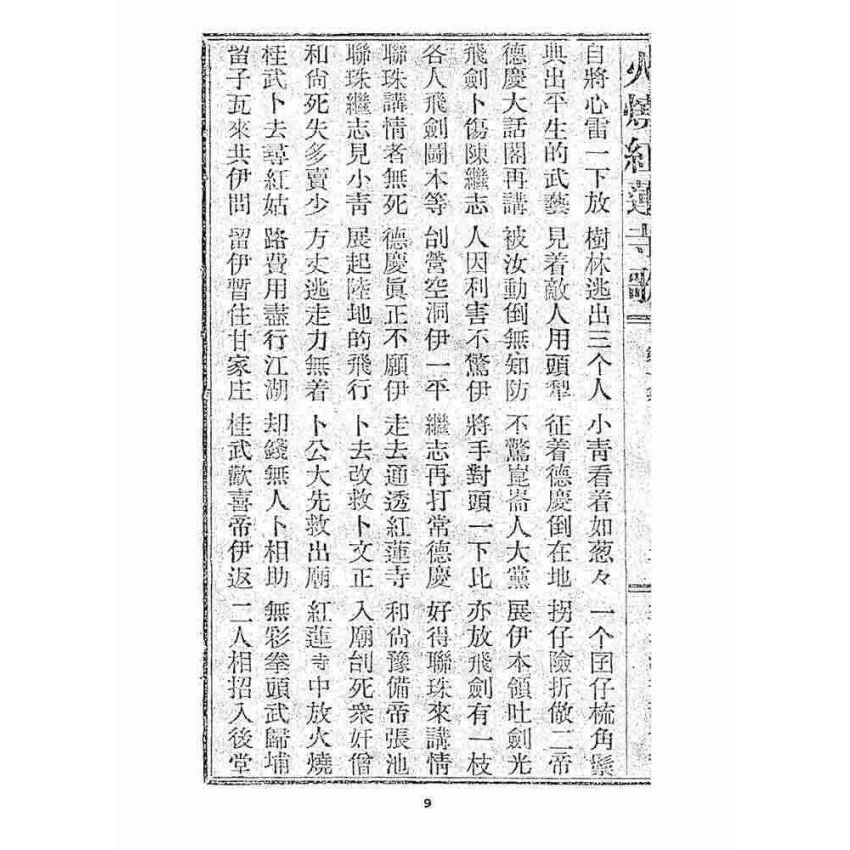 火燒紅蓮寺歌
自將心雷一下放 樹林逃出三个人 小靑看着如葱々 一个囝仔梳角鬃
典出平生的武藝 見着敵人用頭犁 征着德慶倒在地 拐仔險折做二帝
德慶大話閣再講 被汝動倒無知防 不驚崑崙人大黨 展伊本領吐劍光
飛劍卜傷陳繼志 人因利害不驚伊 將手對頭一下比 亦放飛劍有一枝
各人飛劍鬪本等 刣營空洞伊一平 繼志再打常德慶 好得聯珠來講情
聯珠講情者無死 德慶眞正不願伊 走去通透紅蓮寺 和尙豫備帝張池
聯珠繼志見小靑 展起陸地的飛行 卜去改救卜文正 入廟刣死衆奸僧
和尙死失多賣少 方丈逃走力無着 卜公大先救出廟 紅蓮寺中放火燒
桂武卜去尋紅姑 路費用盡行江湖 却錢無人卜相助 無彩拳頭武歸埔
留子瓦來共伊問 留伊暫住甘家庄 桂武歡喜帝伊返 二人相招入後堂
9